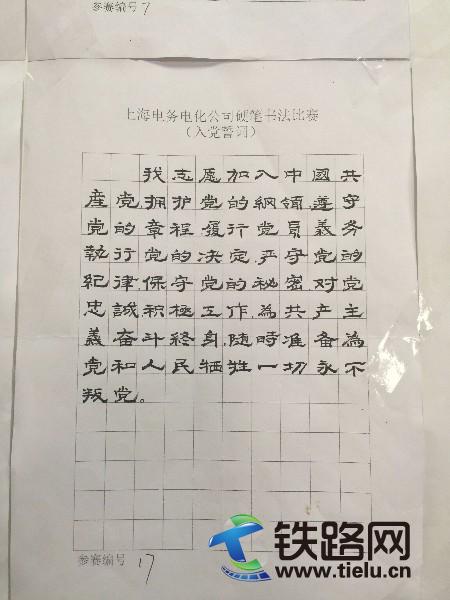 参赛编号 7
上海电务电化公司硬笔书法比赛
（入党誓词）
我志愿加入中國共
産党,拥护党的綱領,遵守
党的章程,履行党員義务
執行党的决定,严守党的
紀律,保守党的秘密,对党
忠誠,积極工作,為共产主
義奋斗終身,随時准备為
党和人民牺牲一切,永不
叛党。
参赛编号 17
铁路网
www.tielu.cn